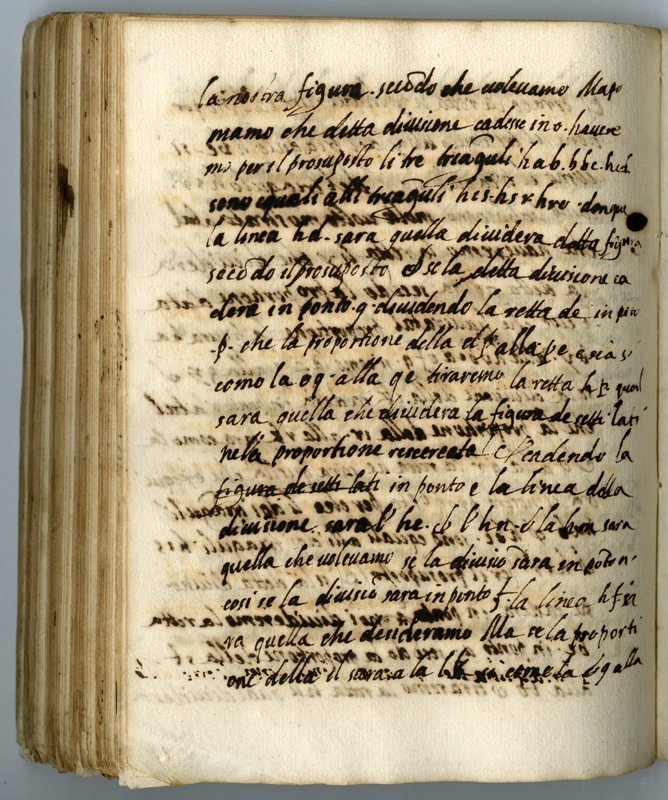 la nostra figura secōdo che volevamo Mapo
niamo che detta divisione cadesse in o. havere
mo per il prosuposto li tre treāguli h a b. h b c. h c d
sono equali alli treāguli h i s. h s r. h r o donque
la linea hd. sara quella dividera detta figura
secōdo il prosuposto Et se la detta divisione ca
dera in ponto. q. dividendo la retta de in pon
.p. che la proportione della d p alla p e
como la oq. alla qe tiraremo la retta h p qual
sara quella che dividera la figura de setti lati
nella proportione rescercata Et cadendo la
figura de setti lati in ponto e la linea della
divisione. sara l' he. l' hn. la sara
quella che volevamo se la divisiō sara in potō n.
cosi se la divisiō sara in ponto f la linea h f sa
ra quella che desideramo Ma se la proporti
one della il sara a la come la alla